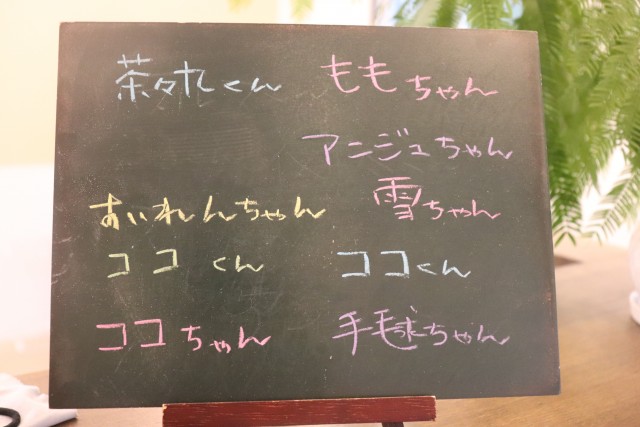 茶々丸くん
ももちゃん
アニジュちゃん
すいれんちゃん
雪ちゃん
ココくん
ココくん
ココちゃん
手毬ちゃん